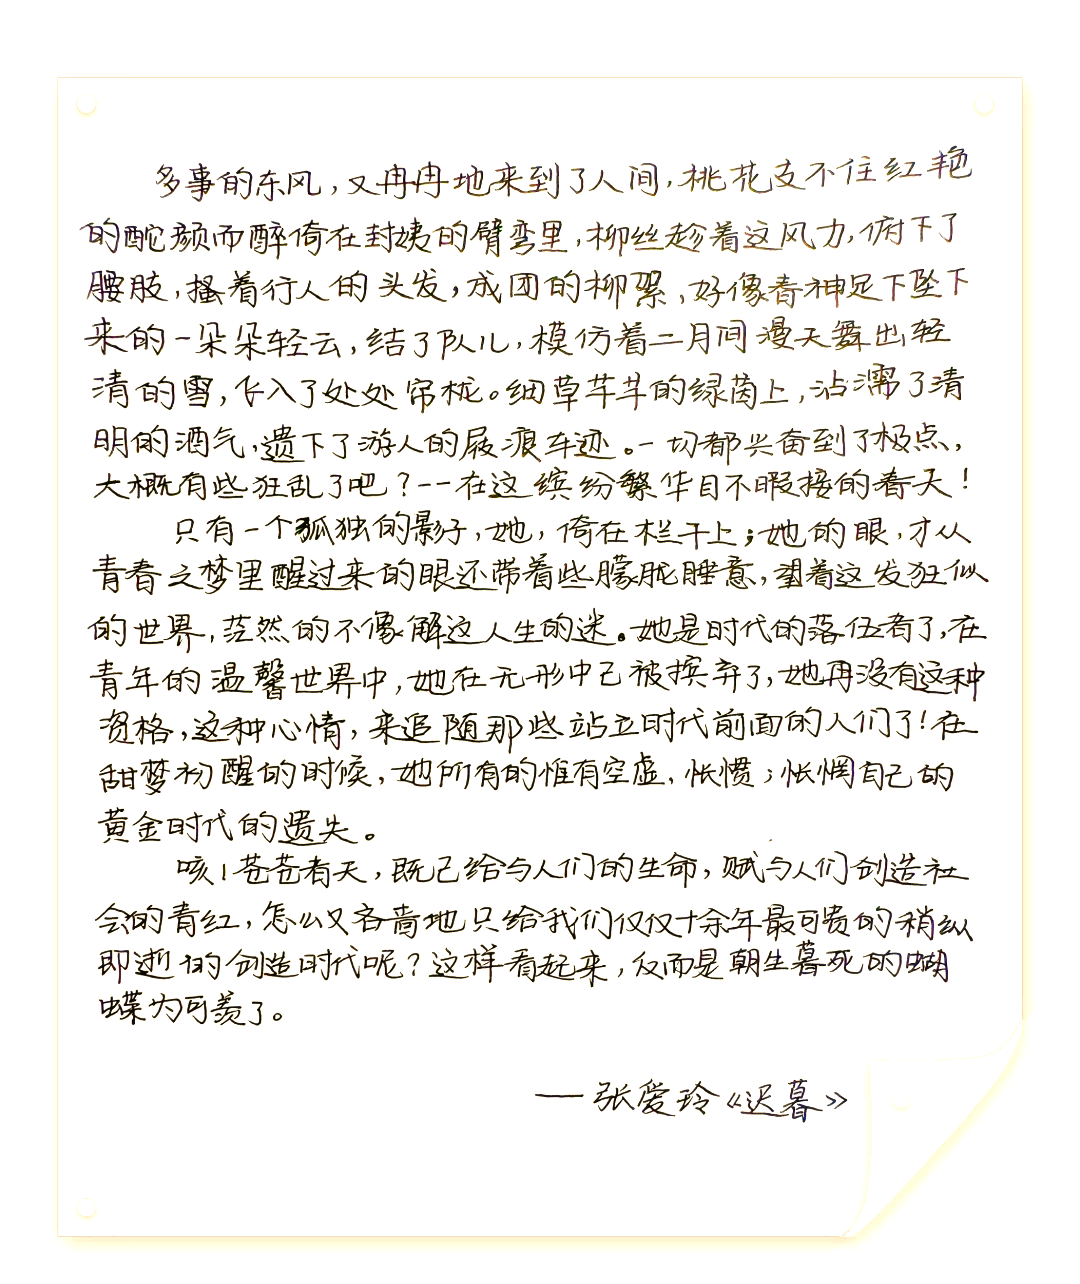 多事的东风，又冉冉地来到了人间，桃花支不住红艳
的酡颜而醉倚在封姨的臂弯里，柳丝趁着这风力，俯下了
腰肢，搔着行人的头发，成团的柳絮，好像春神足下坠下
来的一朵朵轻云，结了队儿，模仿着二月间漫天舞出轻
清的雪，飞入了处处帘栊。细草芊芊的绿茵上，沾濡了清
明的酒气，遗下了游人的屐痕车迹。一切都兴奋到了极点，
大概有些狂乱了吧？--在这缤纷繁华目不暇接的春天！
只有一个孤独的影子，她，倚在栏干上；她的眼，才从
青春之梦里醒过来的眼还带着些朦胧睡意，望着这发狂似
的世界，茫然的不像解这人生的迷。她是时代的落伍者了，在
青年的温馨世界中，她在无形中已被摈弃了，她再没有这种
资格，这种心情，来追随那些站立时代前面的人们了！在
甜梦初醒的时候，她所有的惟有空虚，怅惯；怅惘自己的
黄金时代的遗失。
咳！苍苍者天，既已给与人们的生命，赋与人们创造社
会的青红，怎么又吝啬地只给我们仅仅十余年最可贵的稍纵
即逝的创造时代呢？这样看起来，反而是朝生暮死的蝴
蝶为可羡了。
——张爱玲《迟暮》